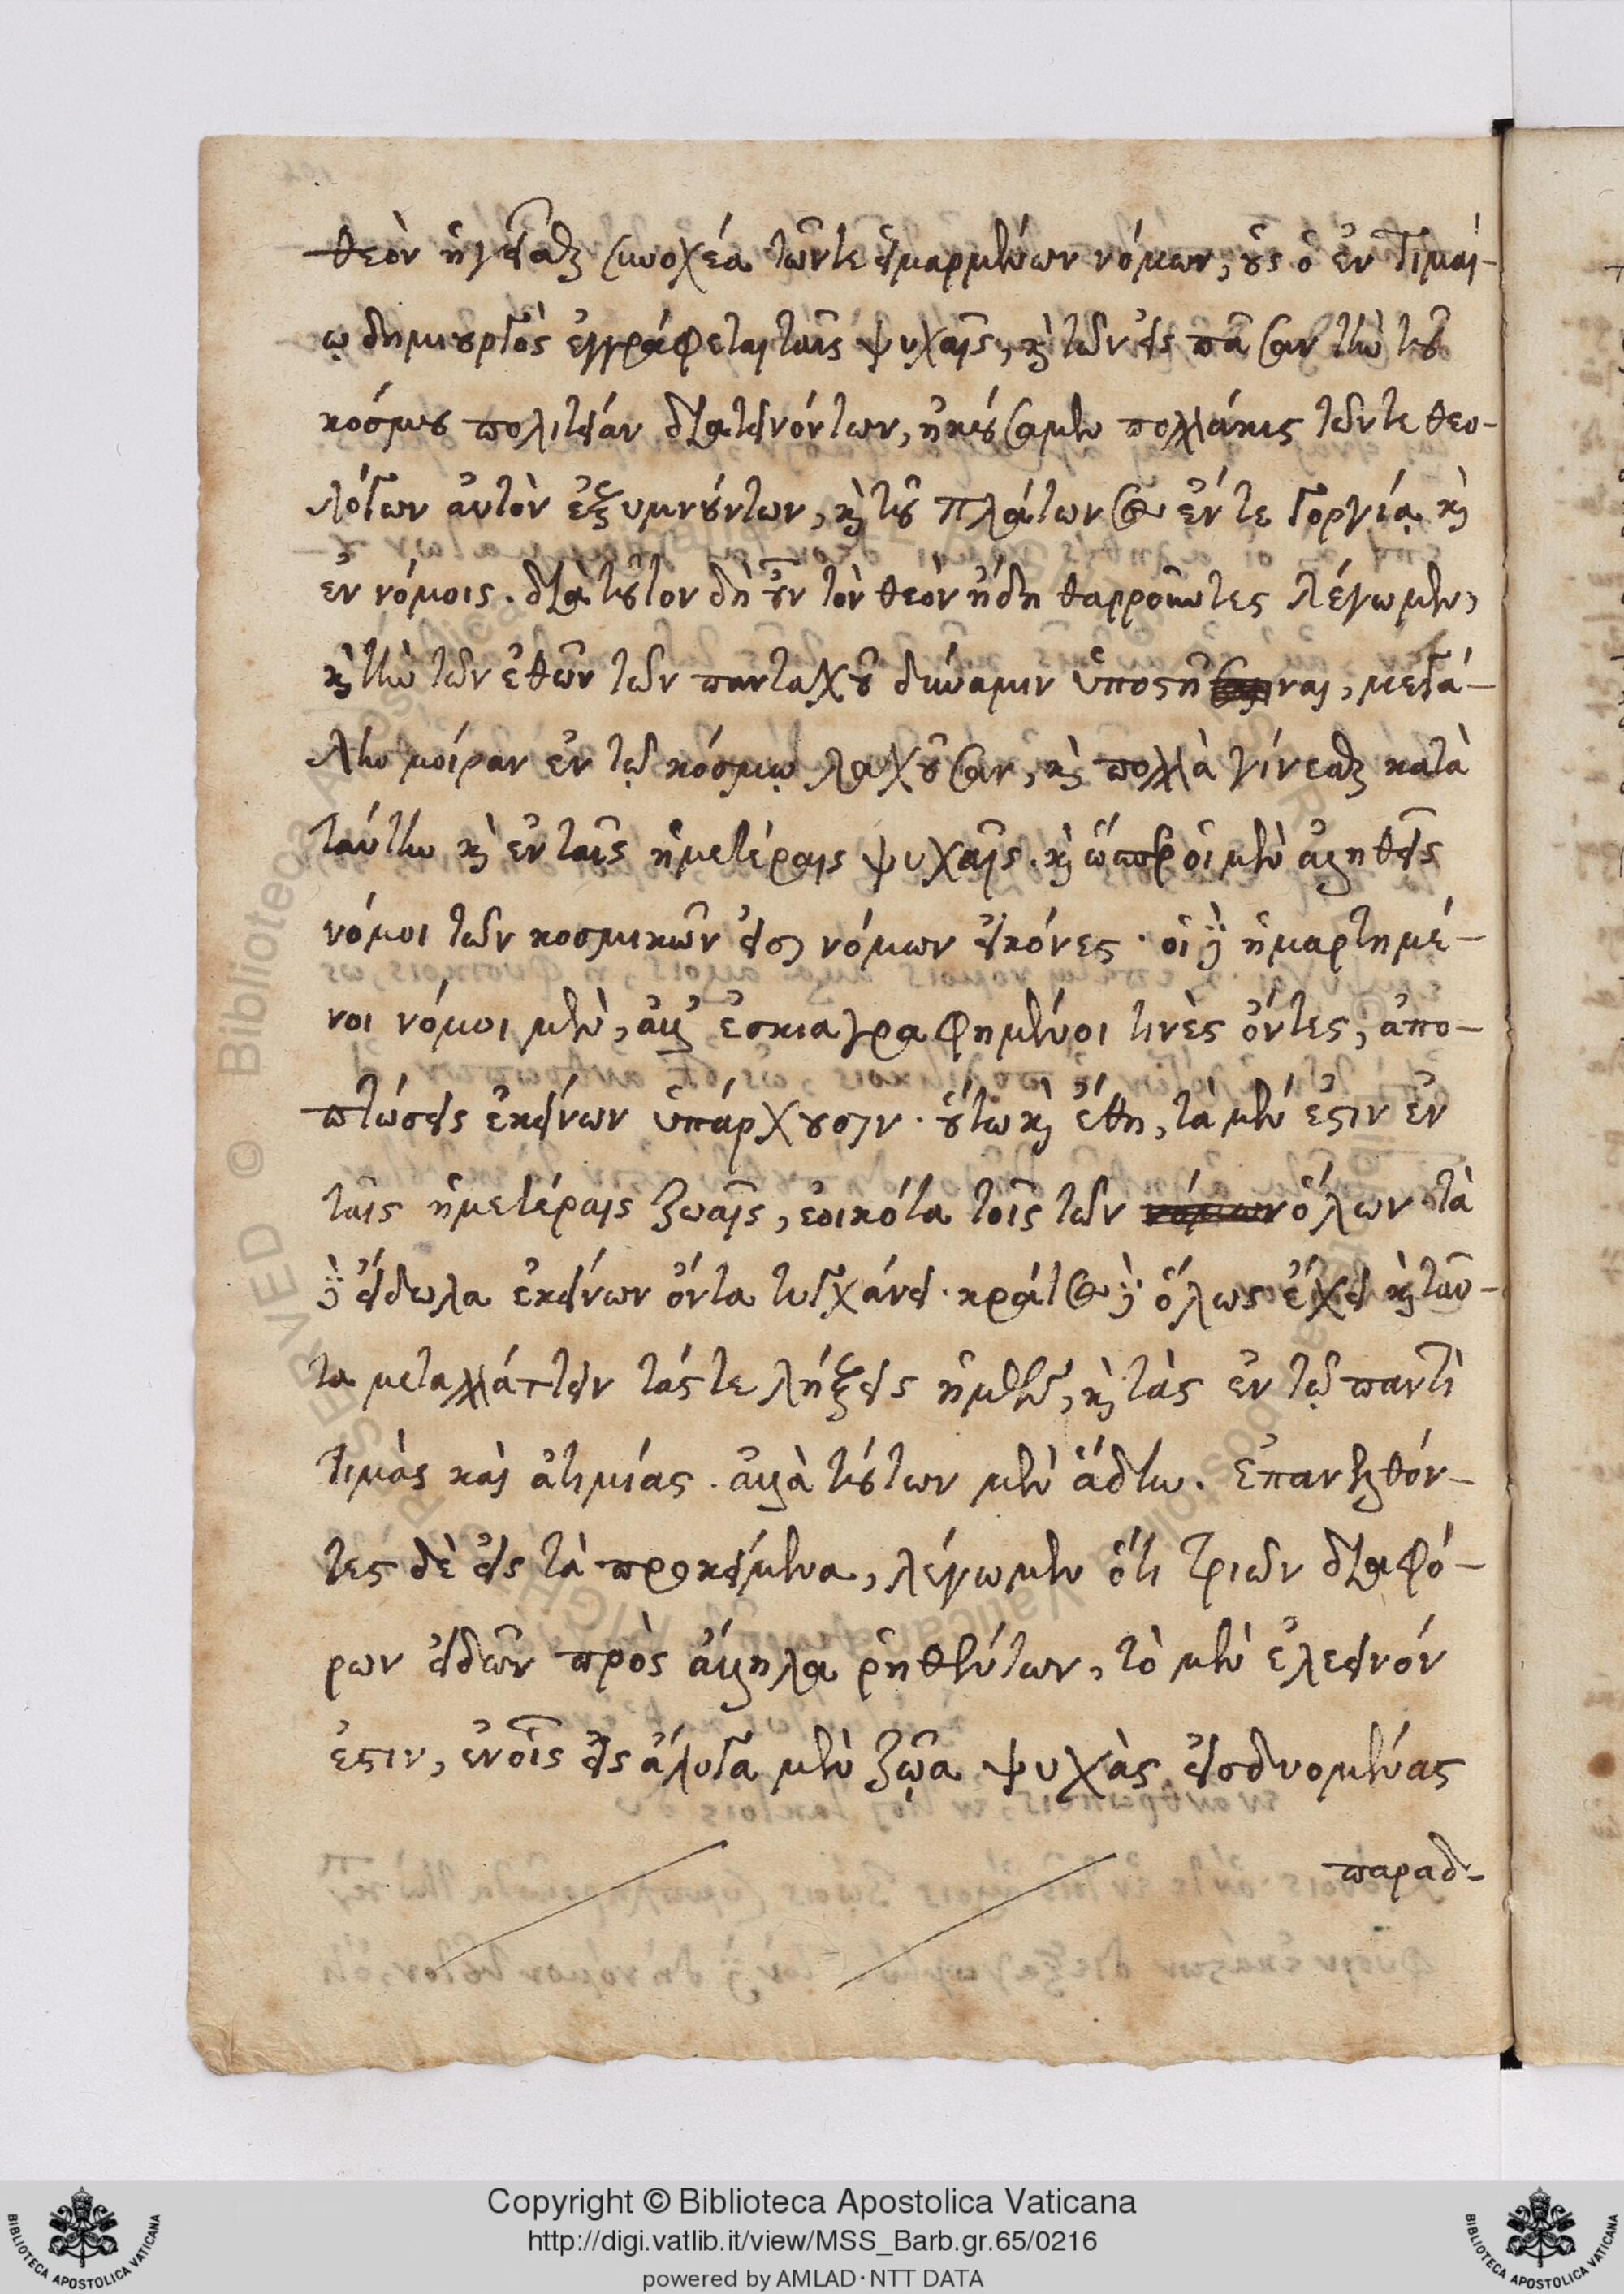 θεὸν ἡγεῖσθαι συνοχέα τῶν τε εἱμαρμένων νόμων, οὓς ὁ ἐν Τιμαί-
ῳ δημιουργὸς ἐγγράφεται ταῖς ψυχαῖς, καὶ τῶν εἰς πᾶσαν τὴν τοῦ
κόσμου πολιτείαν διατεινόντων, ἠκούσαμεν πολλάκις τῶν τε θεο-
λόγων αὐτὸν ἐξυμνούντων, καὶ τοῦ Πλάτωνος ἐν τε Γοργίᾳ καὶ
ἐν νόμοις. διὰ τοῦτον δὴ οὖν τὸν θεὸν ἤδη θαρροῦντες λέγωμεν,
καὶ τὴν τῶν ἐθῶν τῶν πανταχοῦ δύναμιν ὑποστῆναι, μεγά-
λην μοίραν ἐν τῷ κόσμῳ λαχοῦσαν, καὶ πολλὰ γίνεσθαι κατὰ
ταύτην καὶ ἐν ταῖς ἡμετέραις ψυχαῖς. καὶ ὥσπερ οἱ μὲν ἀληθεῖς
νόμοι τῶν κοσμικῶν εἰσι νόμων εἰκόνες· οἱ δὲ ἡμαρτημέ-
νοι νόμοι μὲν, ἀλλ' ἐσκιαγραφημένοι τινὲς ὄντες, ἀπο-
πτώσεις ἐκείνων ὑπάρχουσιν· οὕτω καὶ ἔθη, τὰ μέν ἐστιν ἐν
ταῖς ἡμετέραις ζωαῖς, ἐοικότα τοῖς τῶν νόμων ὅλων· τὰ
δὲ εἴδωλα ἐκείνων ὄντα τυγχάνει. κράτος δὲ ὅλως ἔχει καὶ ταῦ-
τα μεταλλάττειν τάς τε λήξεις ἡμῶν, καὶ τὰς ἐν τῷ παντὶ
τιμὰς καὶ ἀτιμίας. ἀλλὰ τούτων μὲν ἅδην. ἐπανελθόν-
τες δὲ εἰς τὰ προκείμενα, λέγωμεν ὅτι τριῶν διαφό-
ρων εἰδῶν πρὸς ἄλληλα ῥηθέντων, τὸ μὲν ἐλεεινόν
ἐστιν, ἐν οἷς εἰς ἄλογα μὲν ζῷα ψυχὰς εἰσδυομένας
παραδ-
Copyright © Biblioteca Apostolica Vaticana
http://digi.vatlib.it/view/MSS_Barb.gr.65/0216
powered by AMLAD·NTT DATA